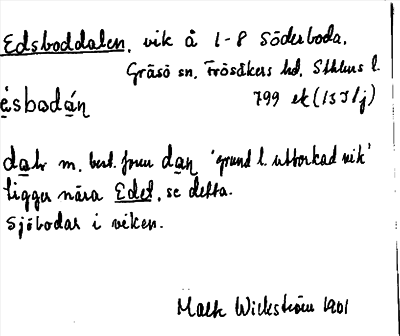 Edsboddalen, vik å 1-8 Söderboda,
Gräsö sn, Frösåkers hd, Sthlms l.
799 ek (13I1j)
ésbodán
dalr m. best. form dan 'grund l. uttorkad vik'
ligger nära Edet, se detta.
Sjöbodar i viken.
Malte Wickström 1901